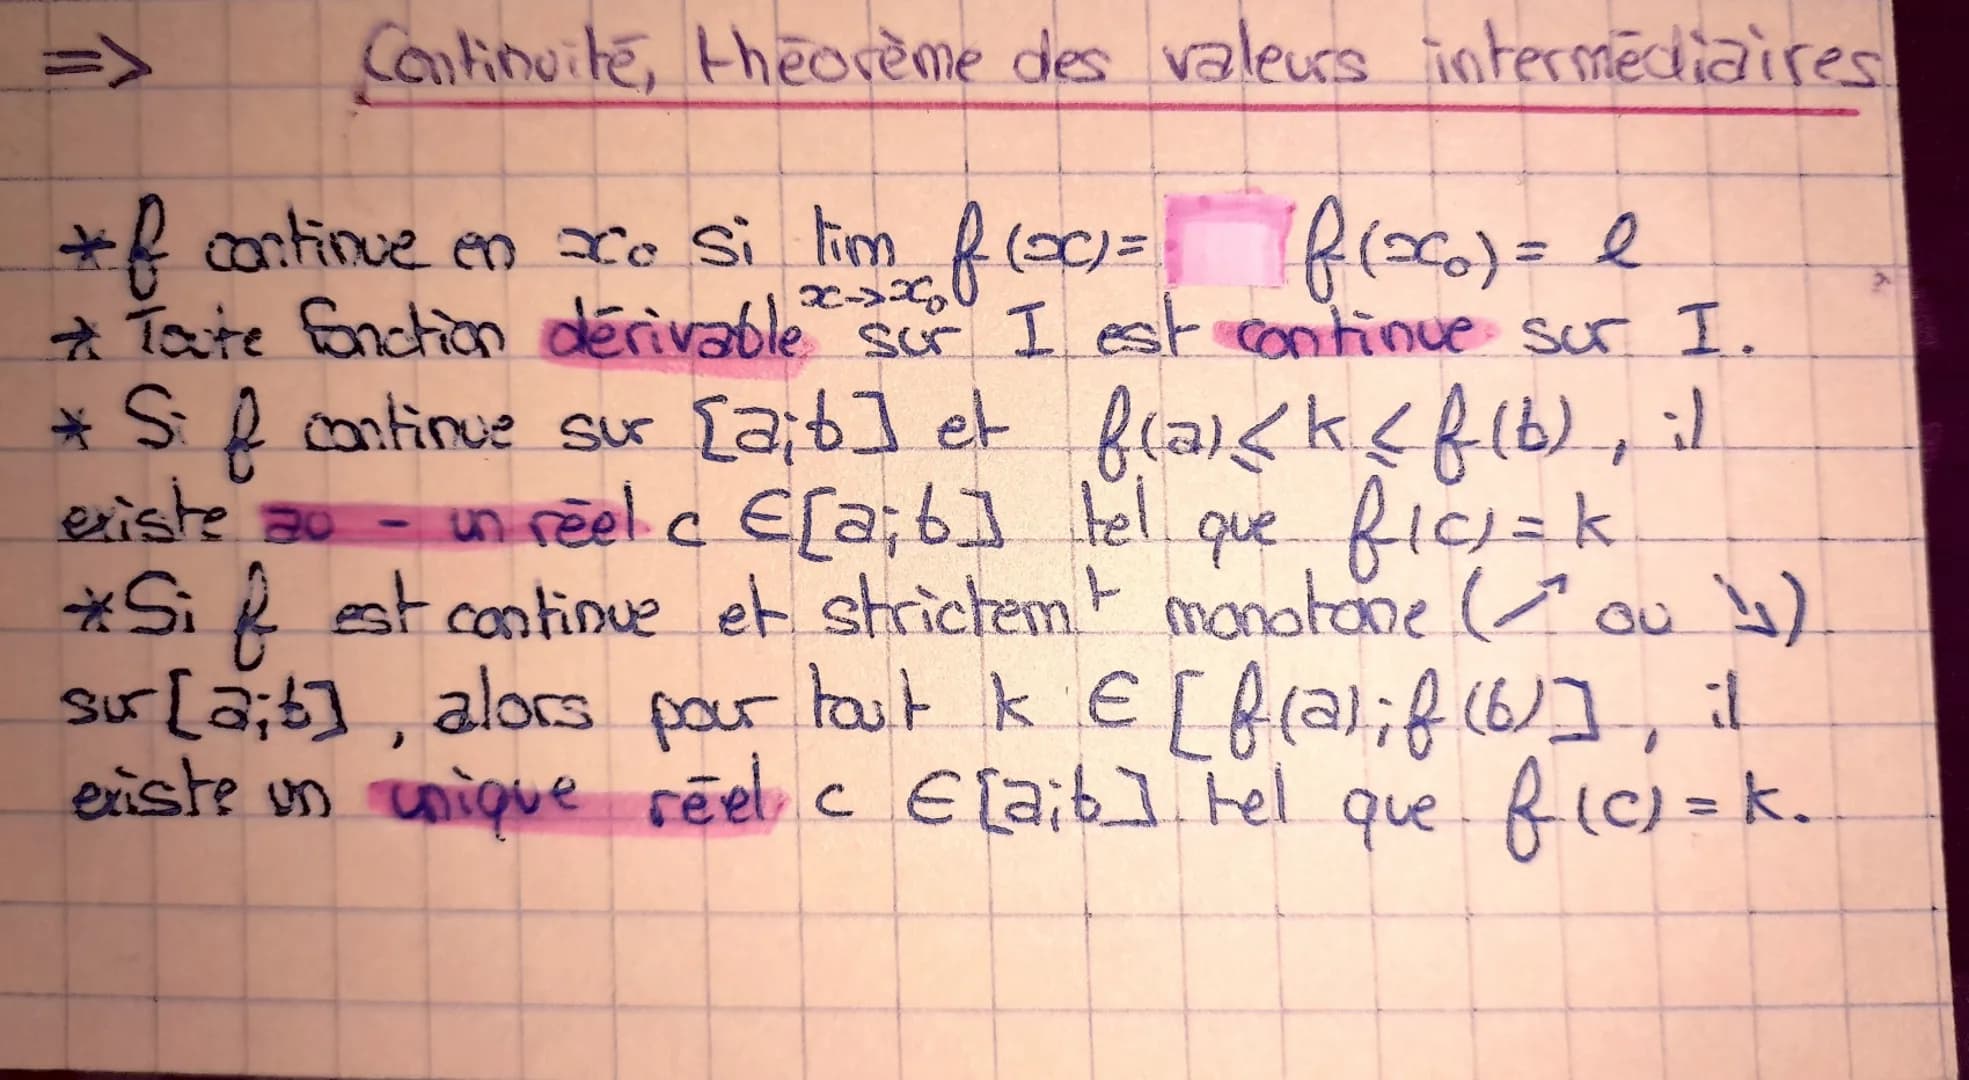 => Continuité, théorème des valeurs intermédiaires
* f continue en x₀ si lim f(x)= f(x₀)= l
x->x₀
* Toute fonction dérivable sur I est continue sur I.
* Si f continue sur [a;b] et f(a)≤k≤f(b), il
existe au - un réel c ∈[a;b] tel que f(c)=k
* Si f est continue et strictemᵗ monotone (↗ ou ↘)
sur [a;b], alors pour tout k ∈ [f(a);f(b)], il
existe un unique réel c ∈[a;b] tel que f(c)=k.